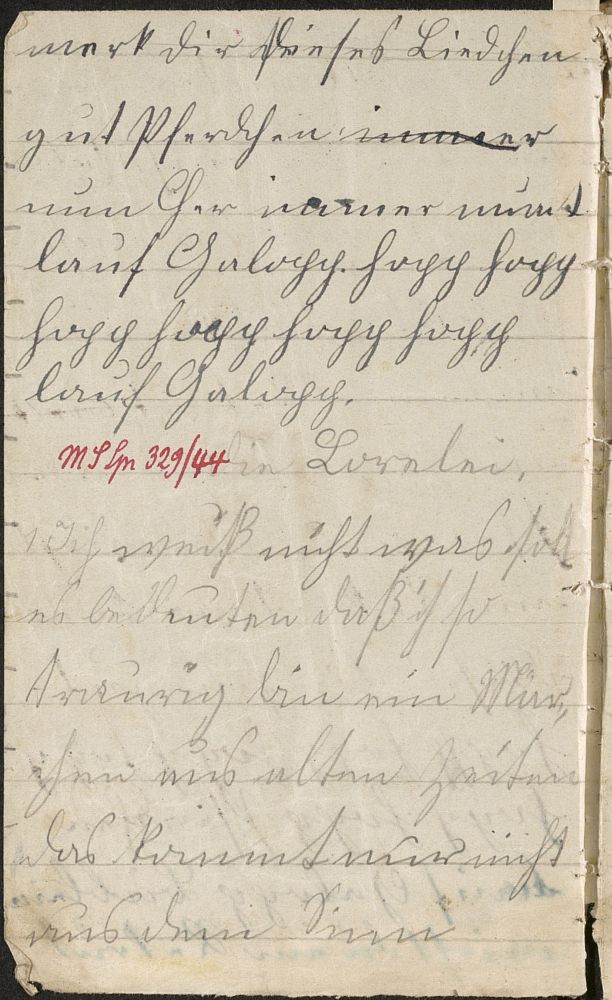 merk dir dieses Liedchen
gut Pferdchen immer
nun immer
lauf Galopp. hopp hopp
hopp hopp hopp hopp
lauf Galopp.
329/44 die Lorelei.
1 Ich weiß nicht was soll
es bedeuten daß ich so
traurig bin ein Mär,
chen aus alten Zeiten
das kommt mir nicht
aus dem Sinn